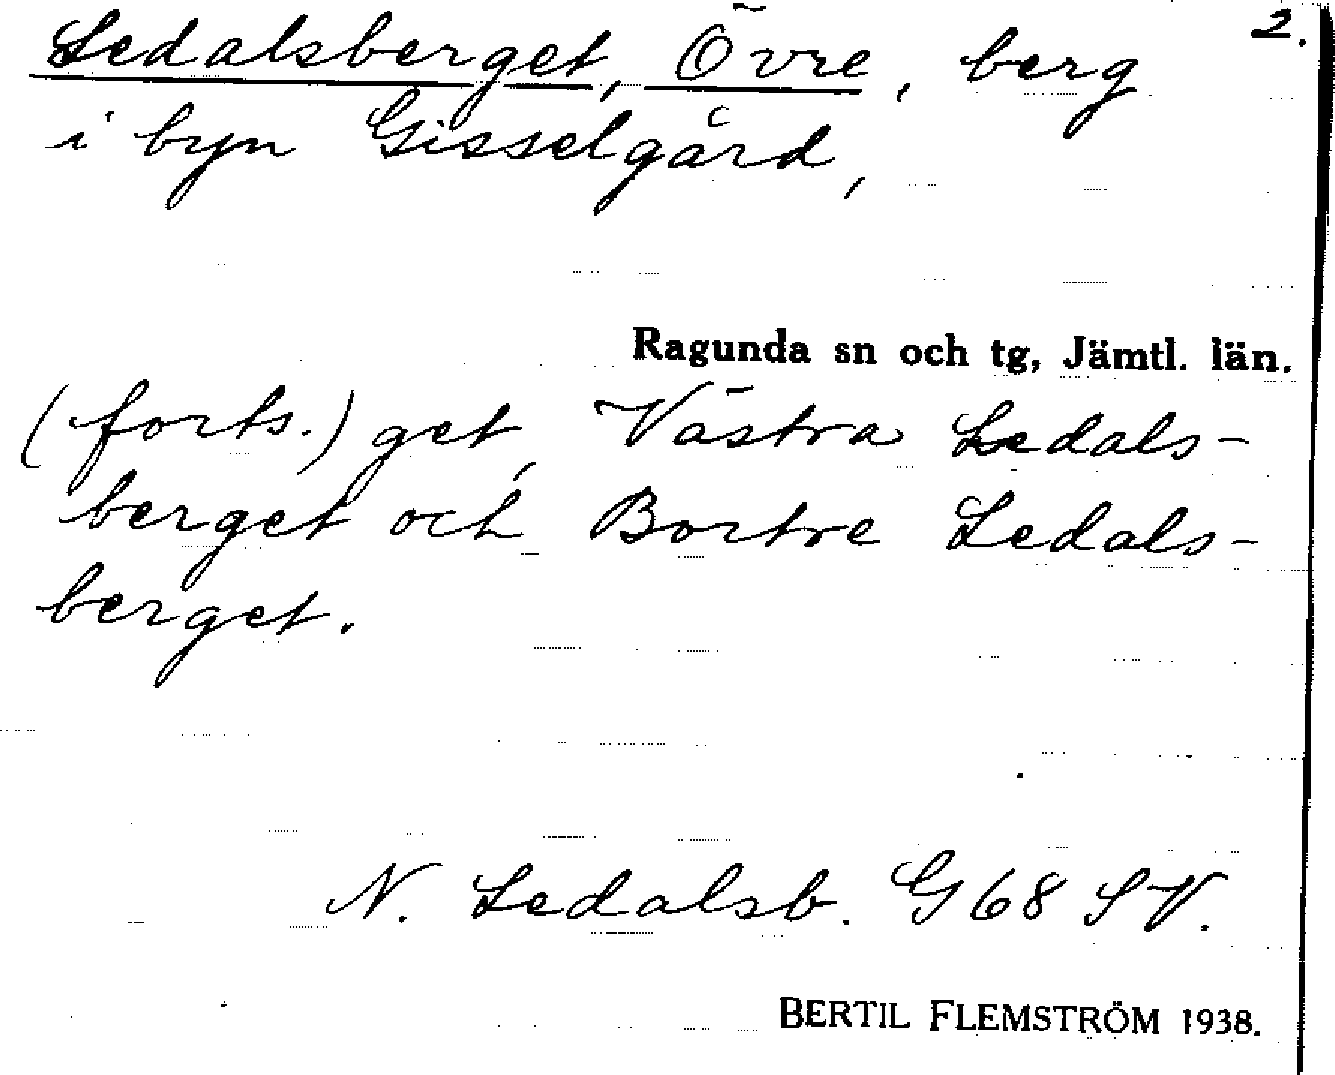 2.
Ledalsberget, Övre, berg
i byn Gisselgård,
Ragunda sn och tg, Jämtl. län.
(forts.) get, Västra Ledals-
berget och Bortre Ledals-
berget.
N. Ledalsb. G68 SV.
BERTIL FLEMSTRÖM 1938.